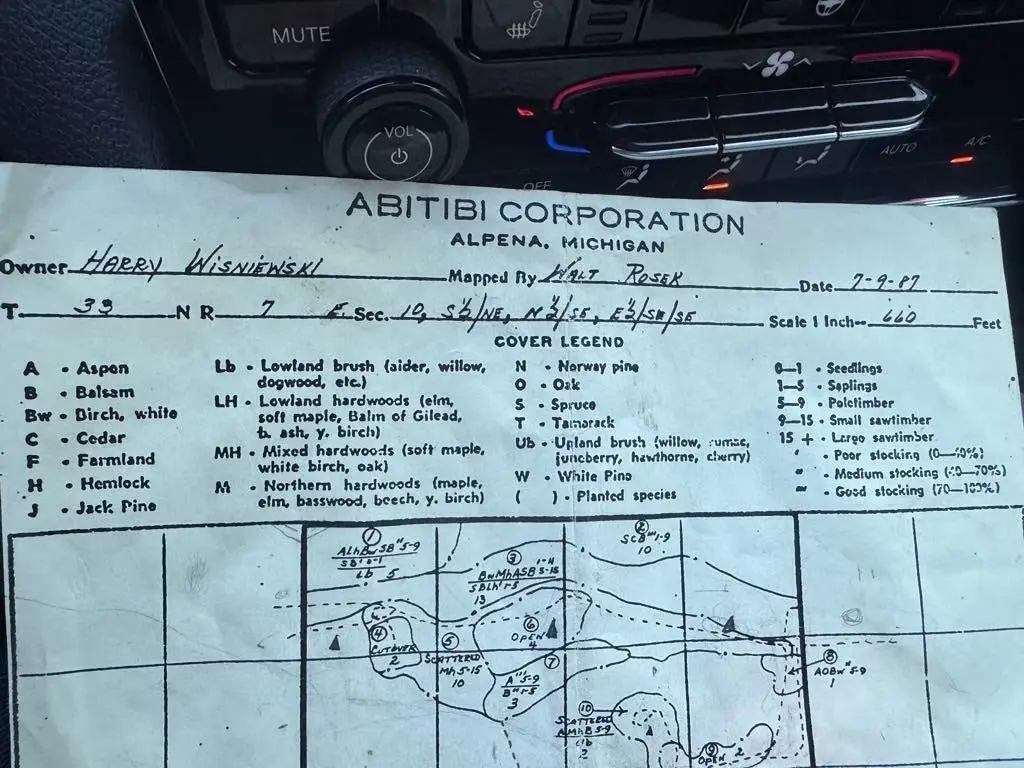 MUTE
VOL
OFF
AUTO
A/C
ABITIBI CORPORATION
ALPENA, MICHIGAN
Owner HARRY WISNIEWSKI Mapped By WALT ROSEK Date 7-9-87
T. 33 N R. 7 E. Sec. 10, S½/NE, N½/SE, E½/SW/SE Scale 1 Inch-- 660 Feet
COVER LEGEND
A - Aspen
B - Balsam
Bw - Birch, white
C - Cedar
F - Farmland
H - Hemlock
J - Jack Pine
Lb - Lowland brush (alder, willow,
dogwood, etc.)
LH - Lowland hardwoods (elm,
soft maple, Balm of Gilead,
b. ash, y. birch)
MH - Mixed hardwoods (soft maple,
white birch, oak)
M - Northern hardwoods (maple,
elm, basswood, beech, y. birch)
N - Norway pine
O - Oak
S - Spruce
T - Tamarack
Ub - Upland brush (willow, sumac,
juneberry, hawthorne, cherry)
W - White Pine
( ) - Planted species
0-1 - Seedlings
1-5 - Saplings
5-9 - Poletimber
9-15 - Small sawtimber
15 + - Large sawtimber
' - Poor stocking (0-40%)
" - Medium stocking (40-70%)
"' - Good stocking (70-100%)
1
ALhBwSB"5-9
Lb 5
2
SCB"'1-9
10
3
BwMhASB 5-15
SBLh'1-5
13
4
CUTOVER
2
5
SCATTERED
Mh 5-15
10
6
OPEN
4
7
A"5-9
B"1-5
3
8
AOBw"5-9
1
10
SCATTERED
AMhB 5-9
Lb
2
9
OPEN 2